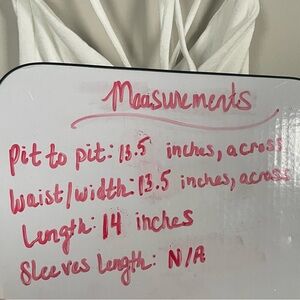 Measurements
Pit to pit: 13.5 inches, across
Waist/width: 13.5 inches, across
Length: 14 inches
Sleeves length: N/A